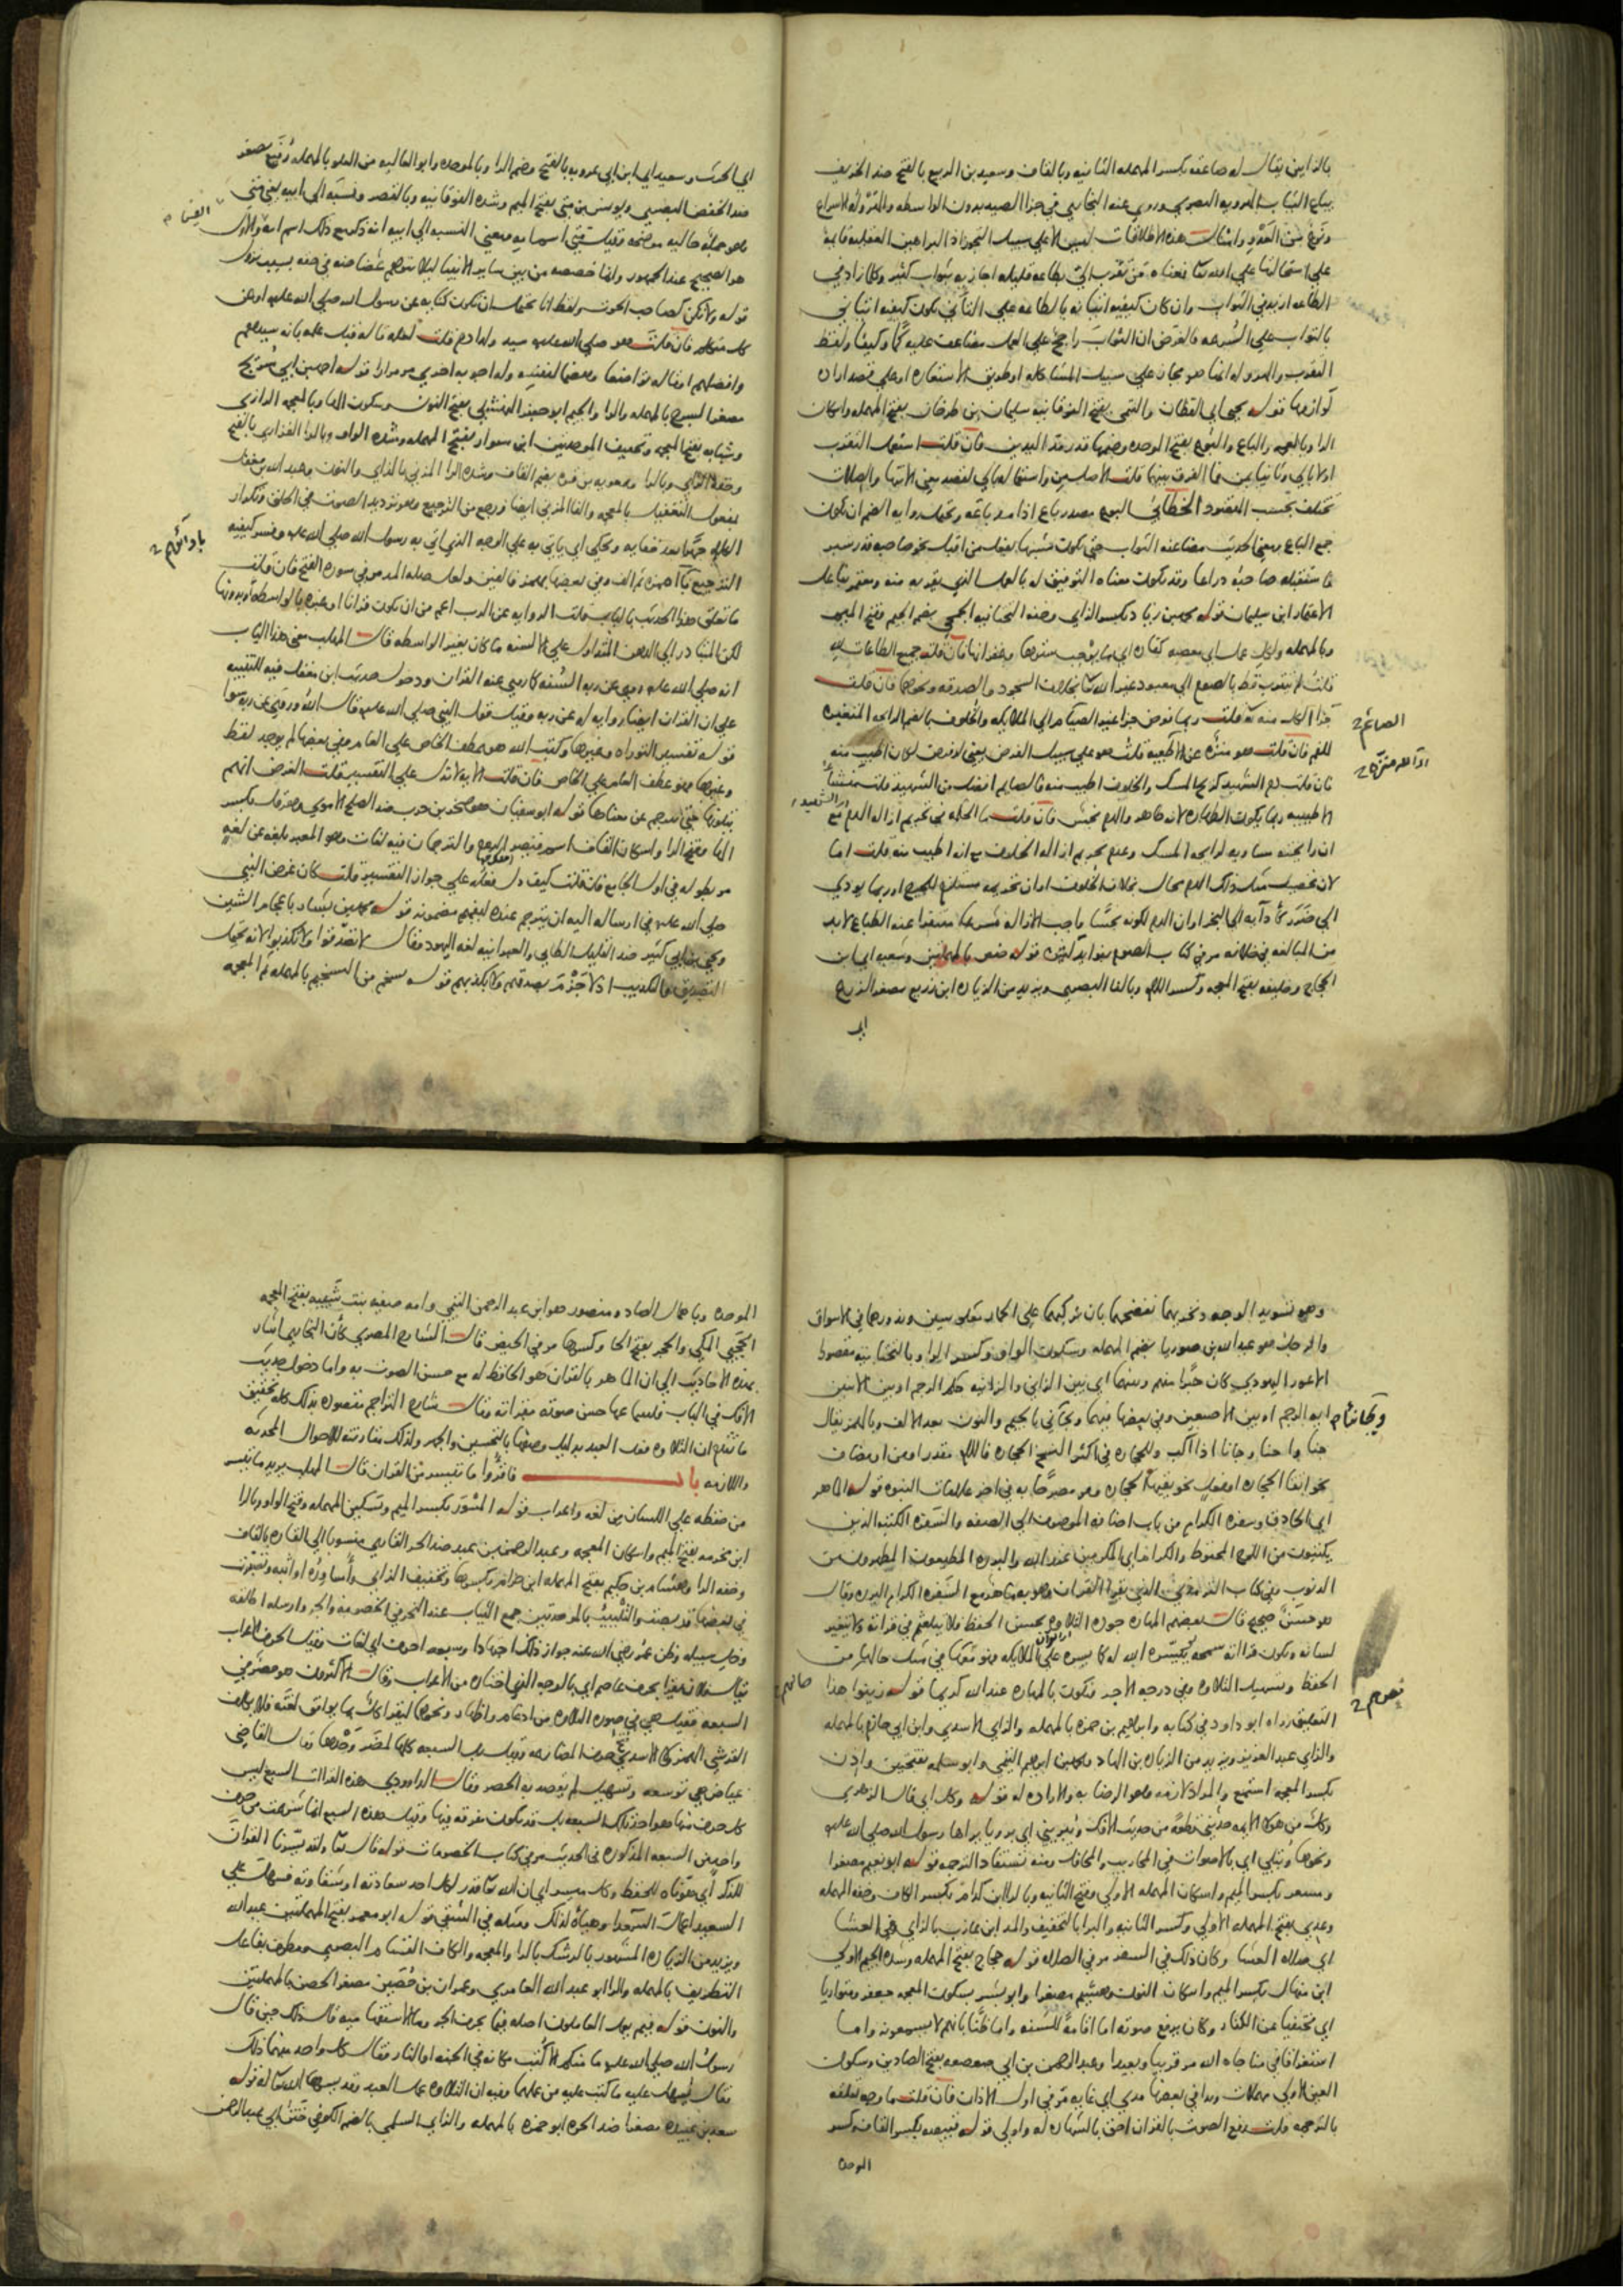 بالزاي يقال له صاعقة بكسر المهملة الثانية وبالقاف وسعيد بن الربيع بالفتح ضد الخريف
يبيع الثياب الهروية البصري وروي عنه البخاري في جزا الصيد بدون الواسطه والهرولة الاسراع
ونوع من العدو وامثال هذه الاطلاقات ليس الا علي سبيل التجوز اذ البراهين العقليه قايمة
علي استحالتها علي الله تعا فمعناه من تقرب الي بطاعه قليله اجازيه بثواب كثير وكلما زاد في
الطاعه ازيد في الثواب وان كان كيفيه اتيانه بالطاعه علي التأني تكون كيفيه اتياني
بالثواب علي السرعه فالغرض ان الثواب راجح علي العمل مضاعف عليه كما وكيفا ولفظ
التقرب والهروله انما هو مجاز علي سبيل المشاكله او طريق الاستعاره او علي قصد اراده
لوازمها قوله يحيى اي القطان والتيمي بفتح الفوقانيه سليمان بن طرخان بفتح المهمله واسكان
الرا وبالمعجمه والباع والبوع بفتح الموحده وضمها قدر مد اليدين فان قلت استعمل التقرب
اولا بالي وثانيا بمن فما الفرق بينهما قلت الاصل من واستعماله بالي لقصد معني الانتها والصلات
تختلف بحسب المقصود الخطابي البوع مصدر باع اذا مد باعه ويحتمل روايه الضم ان يكون
جمع الباع ومعنى الحديث مضاعفه الثواب حتي يكون مشبها بفعل من اقبل نحو صاحبه قدر شبر
فاستقبله صاحبه ذراعا وقد يكون معناه التوفيق له بالعمل الذي يقربه منه ومعتمر بفاعل
الاعتمار ابن سليمان قوله محمد بن زياد بكسر الزاي وخفه التحتانيه الجمحي بضم الجيم وفتح الميم
وبالمهمله ولكل عمل اي معصيه كفاره اي ما يوجب سترها وغفرانها فان قلت جميع الطاعات لله
قلت لم يتقرب قط بالصوم الي معبود غير الله تعا بخلاف السجود والصدقه ونحوهما فان قلت
جزا الكل منه تعا قلت ربما فوض جزا غير الصيام الي الملايكه والخلوف بالضم الرايحه المتغيره
للفم فان قلت هو منزه عن الاطيبيه قلت هو علي سبيل الفرض يعني لو فرض لكان اطيب منه
فان قلت دم الشهيد كريح المسك والخلوف اطيب منه فالصايم افضل من الشهيد قلت منشأ
الاطيبيه ربما يكون الطهاره لانه طاهر والدم نجس فان قلت ما الحكمه في تحريم ازاله الدم مع
ان رايحته مساويه لرايحه المسك وعدم تحريم ازاله الخلوف مع انه اطيب منه قلت اما
لان تحصيل مثل ذلك الدم محال بخلاف الخلوف او ان تحريمه مستلزم للحرج او ربما يودي
الي ضرر كأدآيه الي البخر او ان الدم لكونه نجسا واجب الازاله شرعا متنفرا عنه الطباع لابد
من المبالغه في خلافه مر في كتاب الصوم بفوايد كثيره قوله حفص بالمهملتين وشعبه اي ابن
الحجاج وخليفه بفتح المعجمه وكسر اللام وبالفا البصري ويزيد من الزياده ابن زريع مصغر الزرع
ابي
الصائم
ابي الحرث وسعيد اي ابن ابي عروبه بالفتح وضم الرا وبالموحده وابو العاليه من العلو بالمهمله رفيع مصغر
ضد الخفض البصري ويونس بن متى بفتح الميم وشده الفوقانيه وبالقصر ونسبه الي ابيه يعني متى
وهو جمله حاليه موضحه وقيل متى اسم امه ومعنى النسبه الي ابيه انه ذكر مع ذلك اسم ابيه والاول
هو الصحيح عند الجمهور وانما خصصه من بين ساير الانبيا ليلا يتوهم غضاضه في حقه بسبب نزول
قوله ولا تكن كصاحب الحوت ولفظ انا يحتمل ان يكون كنايه عن رسول الله صلي الله عليه او عن
كل متكلم فان قلت هو صلي الله عليه سيد ولد ادم قلت لعله قاله قبل علمه بانه سيدهم
وافضلهم او قاله تواضعا وهضما لنفسه وله اجوبه اخري مر مرارا قوله احمد بن ابي سريج
مصغر السرج بالمهمله والرا والجيم ابو جعفر النهشلي بفتح النون وسكون الها وبالمعجمه الرازي
وشبابه بفتح المعجمه وتخفيف الموحدتين ابن سوار بفتح المهمله وشده الواو وبالرا الفزاري بالفتح
وخفه الزاي وبالرا ومعويه بن قره بضم القاف وشده الرا المزني بالزاي والنون وعبد الله بن مغفل
بمفعول التغفيل بالمعجمه والفا المزني ايضا ورجع من الترجيع وهو ترديد الصوت في الحلق وتكرار
الكلام جهرا بعد خفايه ويحكي اي ياتي به علي الوجه الذي اتي به رسول الله صلي الله عليه وفسر كيفيه
الترجيع بآ همزه ثم الف وفي بعضها بهمز فالفين ولعل صله المد مر في سوره الفتح فان قلت
ما تعلق هذا الحديث بالباب قلت الروايه عن الرب اعم من ان يكون قرانا او غيره بالواسطه او بدونها
لكن المتبادر الي الذهن المتداول علي الالسنه ما كان بغير الواسطه قال المهلب معنى هذا الباب
انه صلي الله عليه روي عن ربه السنه كما روي عنه القران ودخول حديث ابن مغفل فيه للتنبيه
علي ان القران ايضا روايه له عن ربه وقيل قول النبي صلي الله عليه قال الله وروي عن ربه سوا
قوله تفسير التوراه وغيرها وكتب الله هو بعطف الخاص علي العام وفي بعضها لم يوجد لفظ
وغيرها فهو عطف العام علي الخاص فان قلت الايه لا تدل علي التفسير قلت الغرض انهم
يتلونها حتى يترجم عن معناها قوله ابو سفيان هو صخر بن حرب ضد الصلح الاموي وهرقل بكسر
الها وفتح الرا واسكان القاف اسم قيصر الروم والترجمان فيه لغات وهو المعبر بلغه عن لغه
مر بطوله في اول الجامع فان قلت كيف دل فعله علي جواز التفسير قلت كان غرض النبي
صلي الله عليه في ارساله اليه ان يترجم عنده ليفهم مضمونه قوله محمد بن بشار باعجام الشين
ويحيى بن ابي كثير ضد القليل الطايي والعبرانيه لغه اليهود فقال لا تصدقوا ولا تكذبوا لانه يحتمل
التصديق والتكذيب اذ لا جزم بصدقهم ولا بكذبهم قوله نسخم من التسخيم بالمهمله ثم المعجمه
وهو تسويد الوجه ونخزيهما نفضحهما بان نركبهما علي الحمار معكوسين وندور بهما في الاسواق
والرجل هو عبد الله بن صوريا بضم المهمله وسكون الواو وكسر الرا وبالتحتانيه مقصورا
الاعور اليهودي كان حبرا منهم وبينهما اي بين الزاني والزانيه حكم الرجم او بين الاثنين
ايه الرجم او بين الاصبعين وفي بعضها فيهما ويجآني بالجيم والنون بعد الالف وبالهمز يقال
جنا واجنا وجانا اذا اكب وللحجاره في اكثر النسخ الحجاره فاللام مقدر او من او مضاف
نحو اتقا الحجاره او فعل نحو يقيها الحجاره ومر مصرحا به في اخر علامات النبوه قوله الماهر
اي الحاذق وسفره الكرام من باب اضافه الموصوف الي الصفه والسفره الكتبه الذين
يكتبون من اللوح المحفوظ والكرام اي المكرمين عند الله والبرره المطيعون المطهرون من
الذنوب وفي كتاب الترمذي الذي يقرا القران وهو به ماهر مع السفره الكرام البرره وقال
هو حسن صحيح قال بعضهم المهاره جوده التلاوه بحسن الحفظ فلا يتلعثم في قراته ولا يتغير
لسانه وتكون قراته سمحه بتيسير الله له كما يسره علي الملايكه فهو معها في مثل حالها من
الحفظ وتسهيل التلاوه وفي درجه الاجر فتكون بالمهاره عند الله كريما قوله زينوا هذا
التعليق رواه ابو داود في كتابه وابراهيم بن حمزه بالمهمله والزاي الاسدي وابن ابي حازم بالمهمله
والزاي عبد العزيز ويزيد من الزياده بن الهاد ومحمد بن ابراهيم التيمي وابو سلمه بفتحتين واذن
بكسر المعجمه استمع والمراد لازمه وهو الرضا به والاراده له قوله وكل اي قال الزهري
وكل من هولاء الايمه حدثني قطعه من حديث الافك ويبريني اي بر ويا براها رسول الله صلي الله عليه
ونحوها ويتلي اي بالاصوات في المحاريب والمحافل ومنه تستفاد الترجمه قوله ابو نعيم مصغرا
ومسعر بكسر الميم واسكان المهمله الاولي وفتح الثانيه وبالرا ابن كدام بكسر الكاف وخفه المهمله
وعدي بفتح المهمله الاولي وكسر الثانيه والبرا بالتخفيف والمد ابن عازب بالزاي في العشا
اي صلاه العشا وكان ذلك في السفر مر في الصلاه قوله حجاج بفتح المهمله وشده الجيم الاولي
ابن منهال بكسر الميم واسكان النون وهشيم مصغرا وابو بشر بسكون المعجمه جعفر ومتواريا
اي مختفيا عن الكفار وكان يرفع صوته اما اقامه للسنه واما ظنا بانهم لا يسمعونه واما
استغراقا في مناجاه الله مر قريبا وبعيدا وعبد الرحمن بن ابي صعصعه بفتح الصادين وسكون
العين الاولي مهملات وندا في بعضها مدي اي غايه مر في اول الاذان فان قلت ما وجه تعلقه
بالترجمه قلت رفع الصوت بالقران احق بالشهاده له واولي قوله قبيصه بكسر القاف وكسر
الموحده
الموحده وباهمال الصاد ومنصور هو ابن عبد الرحمن التيمي وامه صفيه بنت شيبه بفتح المعجمه
الحجبي المكي والحجر بفتح الحا وكسرها مر في الحيض قال الشارح المصري كأن البخاري اشار
بهذه الاحاديث الي ان الماهر بالقران هو الحافظ له مع حسن الصوت به واما دخول حديث
الافك في الباب فلسماعها حسن صوته بقراته وقال شارح التراجم مقصوده بذلك كله تحقيق
ما تقدم ان التلاوه فعل العبد بدليل وصفها بالتحسين والجهر ولذلك مقارنته للاحوال المحدثه
واللازمه باب فاقرؤا ما تيسر من القران قال المهلب يريد ما تيسر
من حفظه علي اللسان من لغه واعراب قوله المسور بكسر الميم وتسكين المهمله وفتح الواو وبالرا
ابن مخرمه بفتح الميم واسكان المعجمه وعبد الرحمن بن عبد ضد الحر القاري منسوبا الي القاره بالقاف
وخفه الرا وهشام بن حكيم بفتح المهمله ابن حزام بكسرها وتخفيف الزاي وأساوره اواثبه وتصبرت
في بعضها تربصت والتلبيب بالموحدتين جمع الثياب عند النحر في الخصومه والجر وارسله اطلقه
وخل سبيله وظن عمر رضي الله عنه جواز ذلك اجتهادا وسبعه احرف اي لغات وقيل الحرف الاعراب
يقال فلان يقرا بحرف عاصم اي بالوجه الذي اختاره من الاعراب وقال الاكثرون هو حصر في
السبعه فقيل هي في صوره التلاوه من ادغام واظهار ونحوهما ليقرا كل بما يوافق لغته فلا يكلف
القرشي الهمز ولا الاسدي فتح حرف المضارعه وقيل بل السبعه كلها لمضر وحدها وقال القاضي
عياض هي توسعه وتسهيل لم يقصد به الحصر وقال الداودي هذه القراات السبع ليس
كل حرف منها هو احد تلك السبعه بل قد تكون مفرقه فيها وقيل هذه السبع انما شرعت من حرف
واحد من السبعه المذكوره في الحديث مر في كتاب الخصومات قوله قال تعا ولقد يسرنا القران
للذكر اي هوناه للحفظ وكل ميسر اي ان الله تعا قدر لكل احد سعادته او شقاوته فسهل علي
السعيد اعمال السعدا وهيأه لذلك ومثله في الشقي قوله ابو معمر بفتح المهملتين عبد الله
ويزيد من الزياده المشهور بالرشك بالرا والمعجمه والكاف القسام البصري ومطرف بفاعل
التطريف بالمهمله والرا ابو عبد الله العامري وعمران بن حصين مصغر الحصن بالمهملتين
والنون قوله فيم يعمل العاملون اصله فيما بحرف الجر وما الاستفهاميه قال ذلك حين قال
رسول الله صلي الله عليه ما منكم الا كتب مكانه في الجنه او النار فقال كل واحد منهما ذلك
فقال يسهل عليه ما كتب عليه من عملهما وفيه ان التلاوه عمل العبد وقد يسرها الله تعا له قوله
سعد بن عبيده مصغرا ضد الحره ابو حمزه بالمهمله والزاي السلمي بالضم الكوفي ختن ابي عبد الرحمن